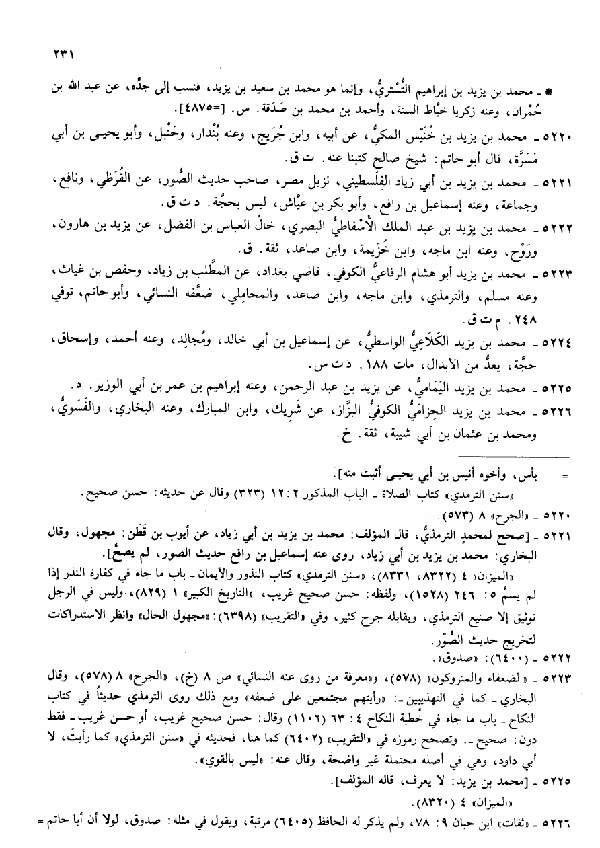 ٢٣١
* ـ محمد بن يزيد بن إبراهيم التُّسْتَريُّ، وإنما هو محمد بن سعيد بن يزيد، فنسب إلى جدِّه، عن عبد الله بن
حُمْران، وعنه زكريا خيَّاط السنة، وأحمد بن محمد بن صَدَقة. س. [=٤٨٧٥].
٥٢٢٠ ـ محمد بن يزيد بن خُنَيْس المكيُّ، عن أبيه، وابن جُرَيج، وعنه بُنْدار، وحَنْبل، وأبو يحيى بن أبي
مَسَرَّة، قال أبو حاتم: شيخ صالح كتبنا عنه. ت ق.
٥٢٢١ ـ محمد بن يزيد بن أبي زياد الفِلَسطيني، نزيل مصر، صاحب حديث الصُّور، عن القُرَظي، ونافع،
وجماعة، وعنه إسماعيل بن رافع، وأبو بكر بن عيَّاش، ليس بحجَّة. د ت ق.
٥٢٢٢ ـ محمد بن يزيد بن عبد الملك الأَسْفاطيُّ البصري، خال العباس بن الفضل، عن يزيد بن هارون،
ورَوْح، وعنه ابن ماجه، وابن خُزَيمة، وابن صاعد، ثقة. ق.
٥٢٢٣ ـ محمد بن يزيد أبو هشام الرفاعيُّ الكوفي، قاضي بغداد، عن المطَّلب بن زياد، وحفص بن غياث،
وعنه مسلم، والترمذي، وابن ماجه، وابن صاعد، والمحاملي، ضعَّفه النسائي، وأبو حاتم، توفي
٢٤٨. م ت ق.
٥٢٢٤ ـ محمد بن يزيد الكَلَاعيُّ الواسطيُّ، عن إسماعيل بن أبي خالد، ومُجالِد، وعنه أحمد، وإسحاق،
حجَّة، يعدُّ من الأبدال، مات ١٨٨. د ت س.
٥٢٢٥ ـ محمد بن يزيد اليَمَاميُّ، عن يزيد بن عبد الرحمن، وعنه إبراهيم بن عمر بن أبي الوزير. د.
٥٢٢٦ ـ محمد بن يزيد الحِزَاميُّ الكوفيُّ البزَّاز، عن شَرِيك، وابن المبارك، وعنه البخاري، والفَسَويُّ،
ومحمد بن عثمان بن أبي شيبة، ثقة. خ.
= بأس، وأخوه أنيس بن أبي يحيى أثبت منه].
«سنن الترمذي» كتاب الصلاة ـ الباب المذكور ٢: ١٢ (٣٢٣) وقال عن حديثه: حسن صحيح.
٥٢٢٠ ـ «الجرح» ٨ (٥٧٣)
٥٢٢١ ـ [صحح لمحمدٍ الترمذيُّ، قال المؤلف: محمد بن يزيد بن أبي زياد، عن أيوب بن قَطَن: مجهول، وقال
البخاري: محمد بن يزيد بن أبي زياد، روى عنه إسماعيل بن رافع حديث الصور، لم يصحَّ].
«الميزان» ٤ (٨٣٢٢، ٨٣٣١)، «سنن الترمذي» كتاب النذور والأيمان ـ باب ما جاء في كفارة النذر إذا
لم يسمِّ ٥: ٢٤٦ (١٥٢٨)، ولفظه: حسن صحيح غريب، «التاريخ الكبير» ١ (٨٢٩)، وليس في الرجل
توثيق إلا صنيع الترمذي، ويقابله جرح كثير، وفي «التقريب» (٦٣٩٨): «مجهول الحال» وانظر الاستدراكات
لتخريج حديث الصُّوْر.
٥٢٢٢ ـ (٦٤٠٠): «صدوق».
٥٢٢٣ ـ «الضعفاء والمتروكون» (٥٧٨)، و«معرفة من روى عنه النسائي» ص ٨ (خ)، «الجرح» ٨ (٥٧٨)، وقال
البخاري ـ كما في التهذيبين ـ: «رأيتهم مجتمعين على ضعفه» ومع ذلك روى الترمذي حديثاً في كتاب
النكاح ـ باب ما جاء في خطبة النكاح ٤: ٦٣ (١١٠٦) وقال: حسن صحيح غريب، أو حسن غريب ـ فقط
دون: صحيح ـ. وتصحح رموزه في «التقريب» (٦٤٠٢) كما هنا، فحديثه في «سنن الترمذي» كما رأيتَ، لا
أبي داود، وهي في أصله محتملة غير واضحة، وقال عنه: «ليس بالقوي».
٥٢٢٥ ـ [محمد بن يزيد: لا يعرف، قاله المؤلف].
«الميزان» ٤ (٨٣٢٠).
٥٢٢٦ ـ «ثقات» ابن حبان ٩: ٧٨، ولم يذكر له الحافظ (٦٤٠٥) مرتبة، ويقول في مثله: صدوق، لولا أن أبا حاتم =